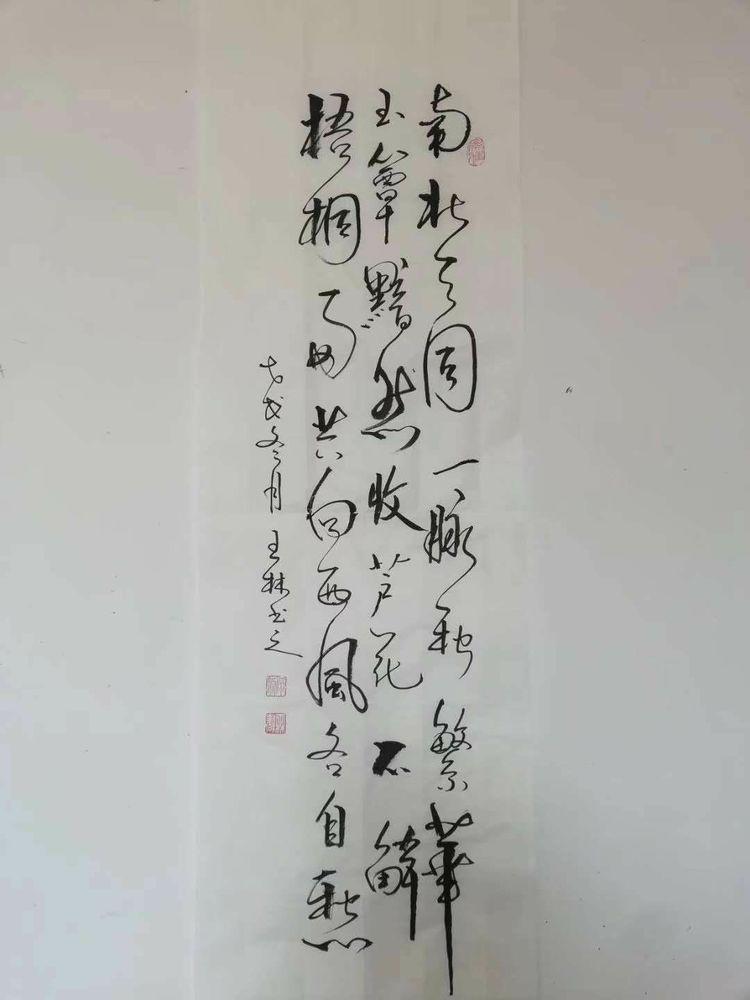 南北同一脉秋繁華
玉簟黯然收芦花不解
梧桐雨共向西風各自愁
戊戌冬月王林书之